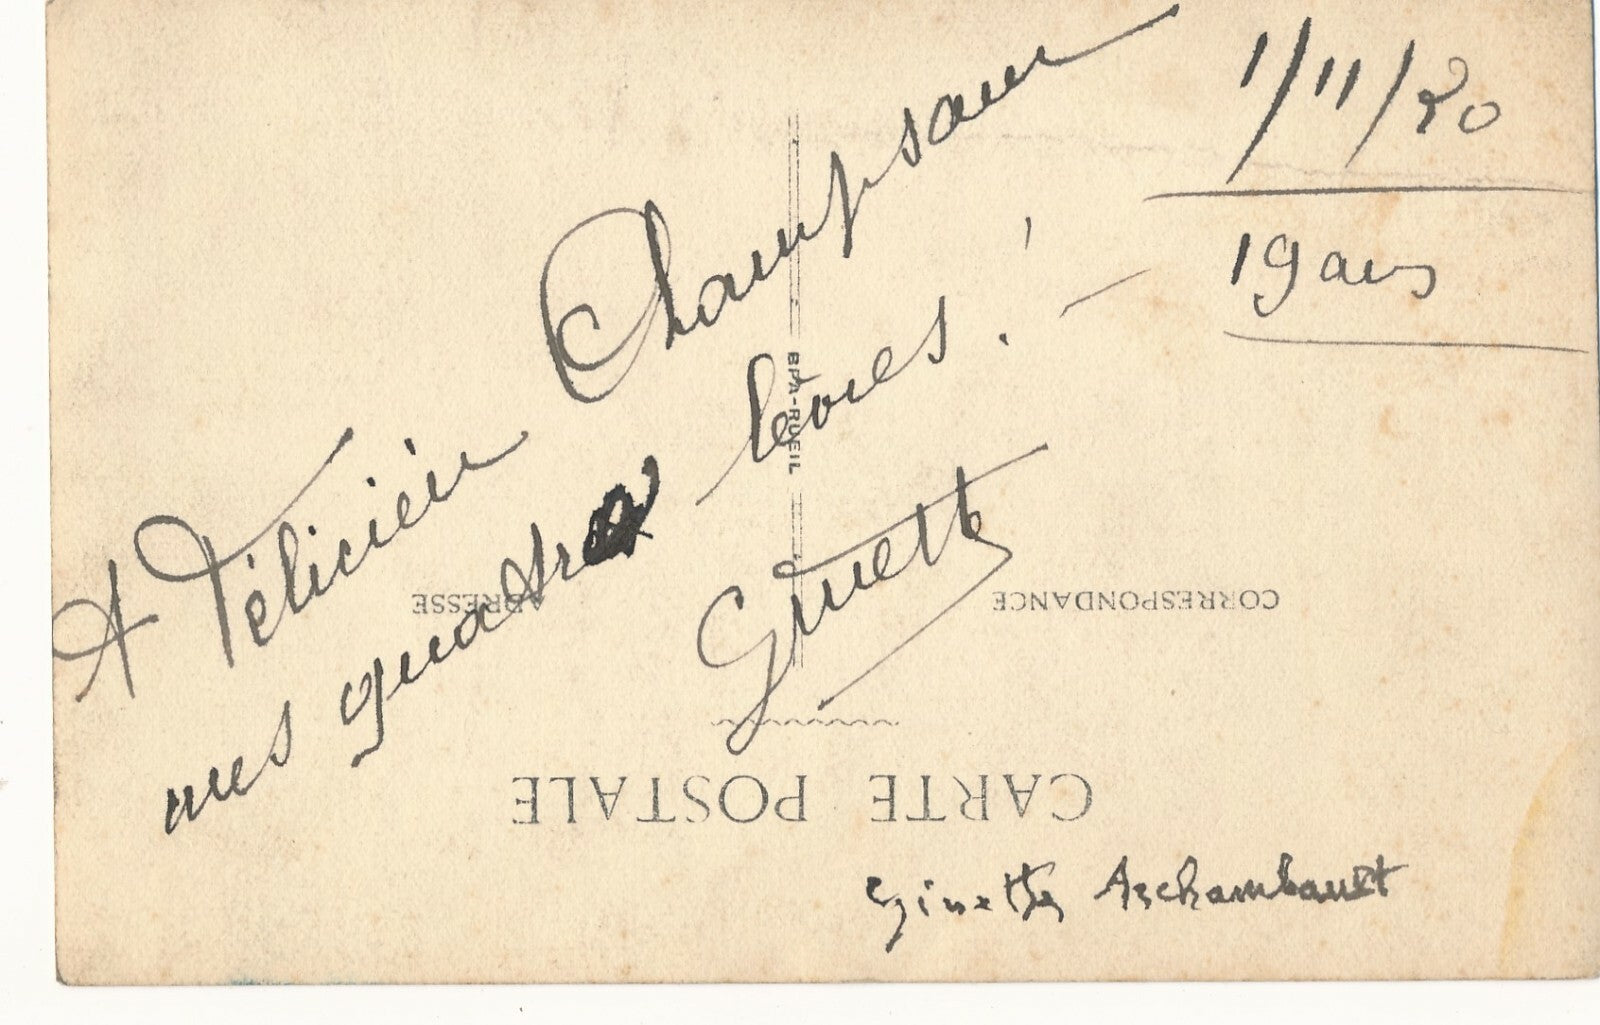 1/11/30
19 ans
A Félicien Champsaur
mes quatre lèvres ! —
Ginette
BPA-RUEIL
ADRESSE
CORRESPONDANCE
CARTE POSTALE
Ginette Archambault